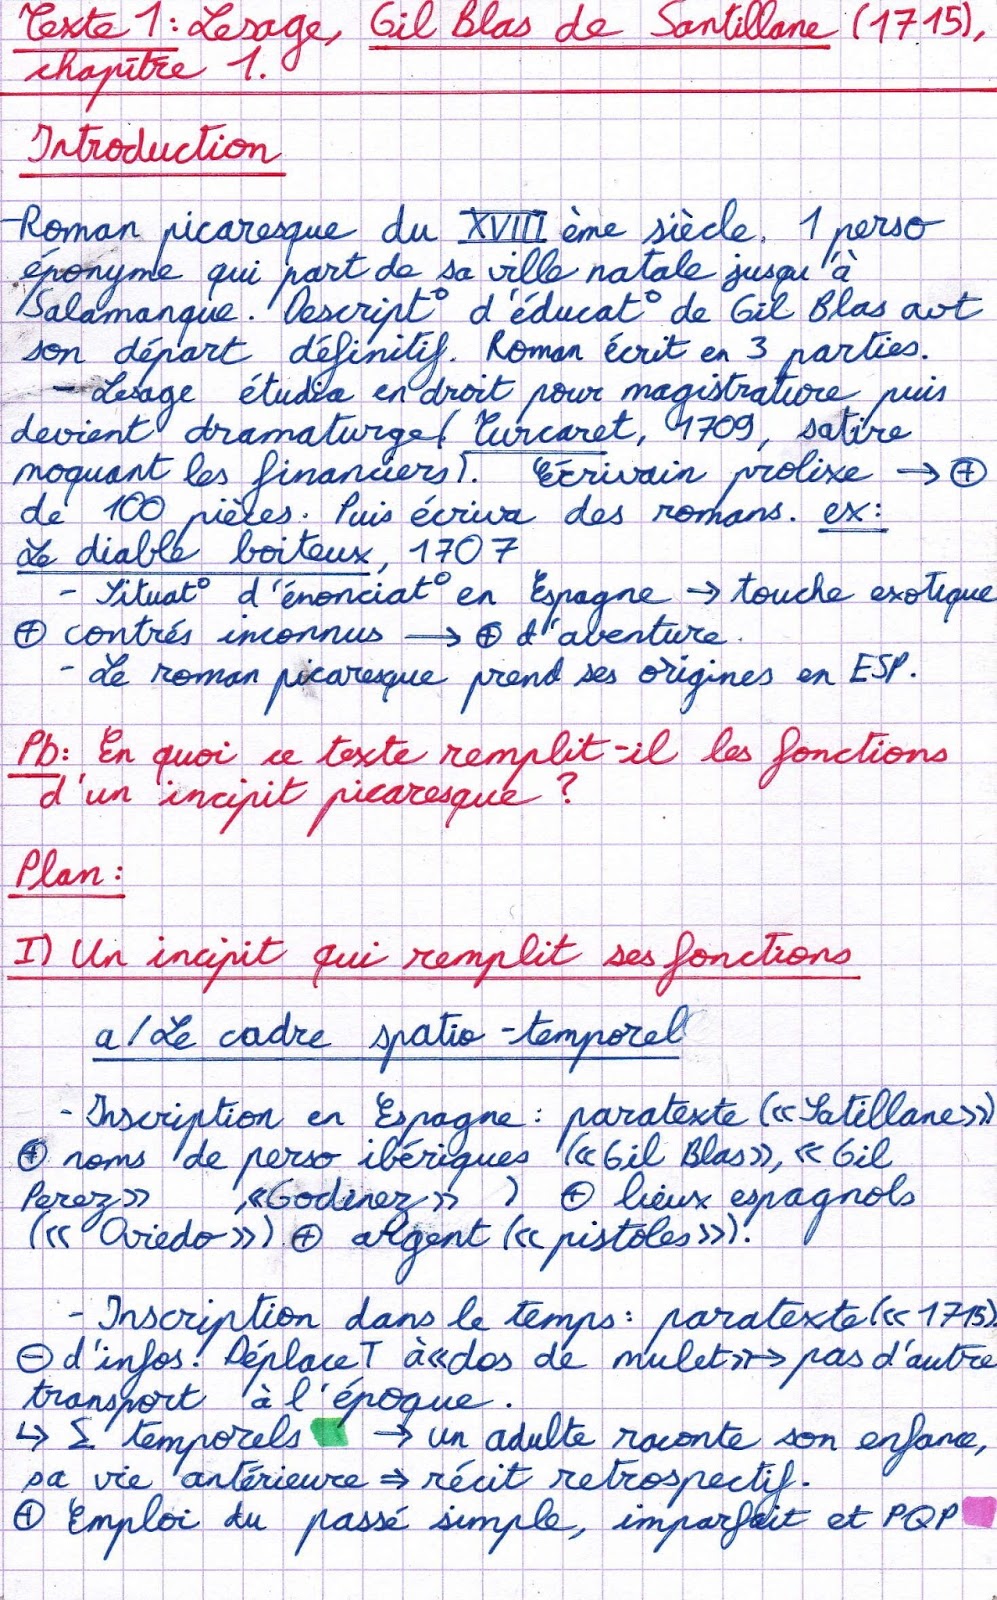 Texte 1: Lesage, Gil Blas de Santillane (1715),
chapitre 1.
Introduction
- Roman picaresque du XVIII ème siècle. 1 perso
éponyme qui part de sa ville natale jusqu'à
Salamanque. Descript° d'éducat° de Gil Blas avt
son départ définitif. Roman écrit en 3 parties.
- Lesage étudia en droit pour magistrature puis
devient dramaturge (Turcaret, 1709, satire
moquant les financiers). Ecrivain prolixe → ⊕
de 100 pièces. Puis écriva des romans. ex:
Le diable boiteux, 1707
- Situat° d'énonciat° en Espagne → touche exotique
⊕ contrés inconnus → ⊕ d'aventure.
- Le roman picaresque prend ses origines en ESP.
Pb: En quoi ce texte remplit-il les fonctions
d'un incipit picaresque ?
Plan:
I) Un incipit qui remplit ses fonctions
a/ Le cadre spatio-temporel
- Inscription en Espagne : paratexte («Satillane»)
⊕ noms de perso ibériques («Gil Blas», «Gil
Perez» , «Godinez» ) ⊕ lieux espagnols
(«Oviedo») ⊕ argent («pistoles»).
- Inscription dans le temps: paratexte («1715»)
⊖ d'infos. DéplaceT à «dos de mulet» → pas d'autre
transport à l'époque.
↳ Σ temporels → un adulte raconte son enfance,
sa vie antérieure ⇒ récit retrospectif.
⊕ Emploi du passé simple, imparfait et PQP